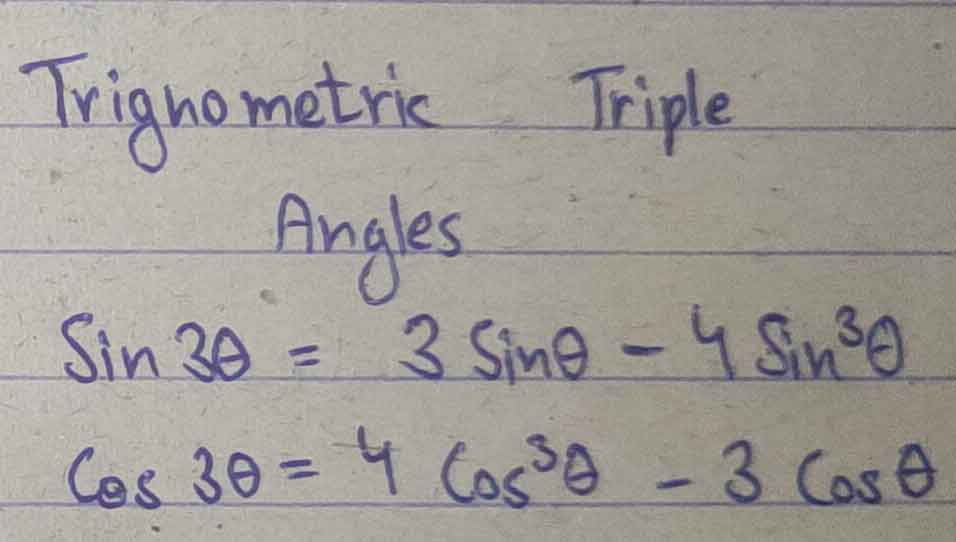 Trignometric Triple
Angles
Sin 3θ = 3 Sinθ - 4 Sin³θ
Cos 3θ = 4 Cos³θ - 3 Cos θ